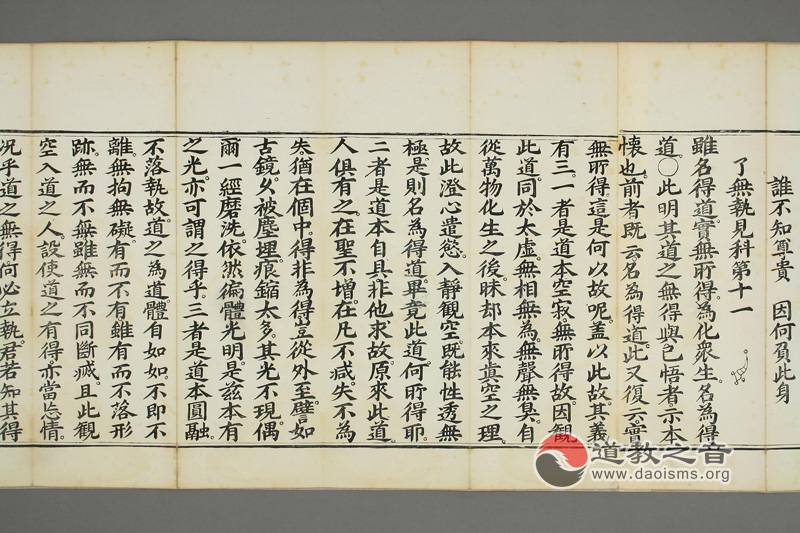 誰不知尊貴　因何負此身
了無執見科第十一
雖名得道。實無所得。為化衆生。名為得
道。〇此明其道之無得與已悟者示本
懷也。前者既云名為得道。此又復云實
無所得這是何以故呢。盖以此故。其義
有三。一者是道本空寂。無所得故。因觀
此道同於太虛。無相無為。無聲無臭。自
從萬物化生之後。昧却本來真空之理。
故此澄心遣慾。入靜觀空。既能性透無
極。是則名為得道。畢竟此道何所得耶
二者是道本自具。非他求故。原來此道
人俱有之。在聖不增。在凡不減。失不為
失。猶在個中。得非為得。豈從外至。譬如
古鏡。久被塵埋。痕鏽太多。其光不現。偶
爾一經磨洗。依然徧體光明。是兹本有
之光。亦可謂之得乎。三者是道本圓融。
不落執故。道之為道。體自如如。不即不
離。無拘無礙。有而不有。雖有而不落形
跡。無而不無。雖無而不同斷滅。且此觀
空入道之人。設使道之有得。亦當忘情。
况乎道之無得。何必立執。君若知其得
道教之音
www.daoisms.org